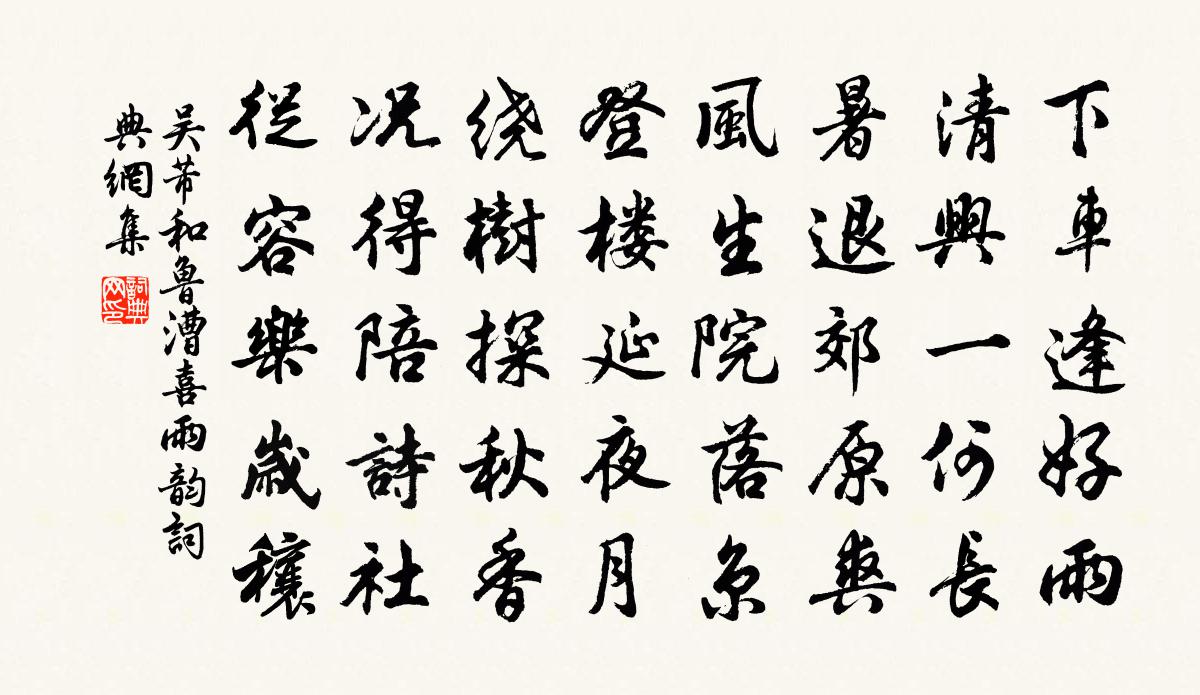 下車逢好雨
清興一何長
暑退郊原爽
風生院落凉
登楼延夜月
绕樹探秋香
况得陪詩社
從容樂歲穰
吴芾和魯漕喜雨韵詞
典網集
詞典
网印